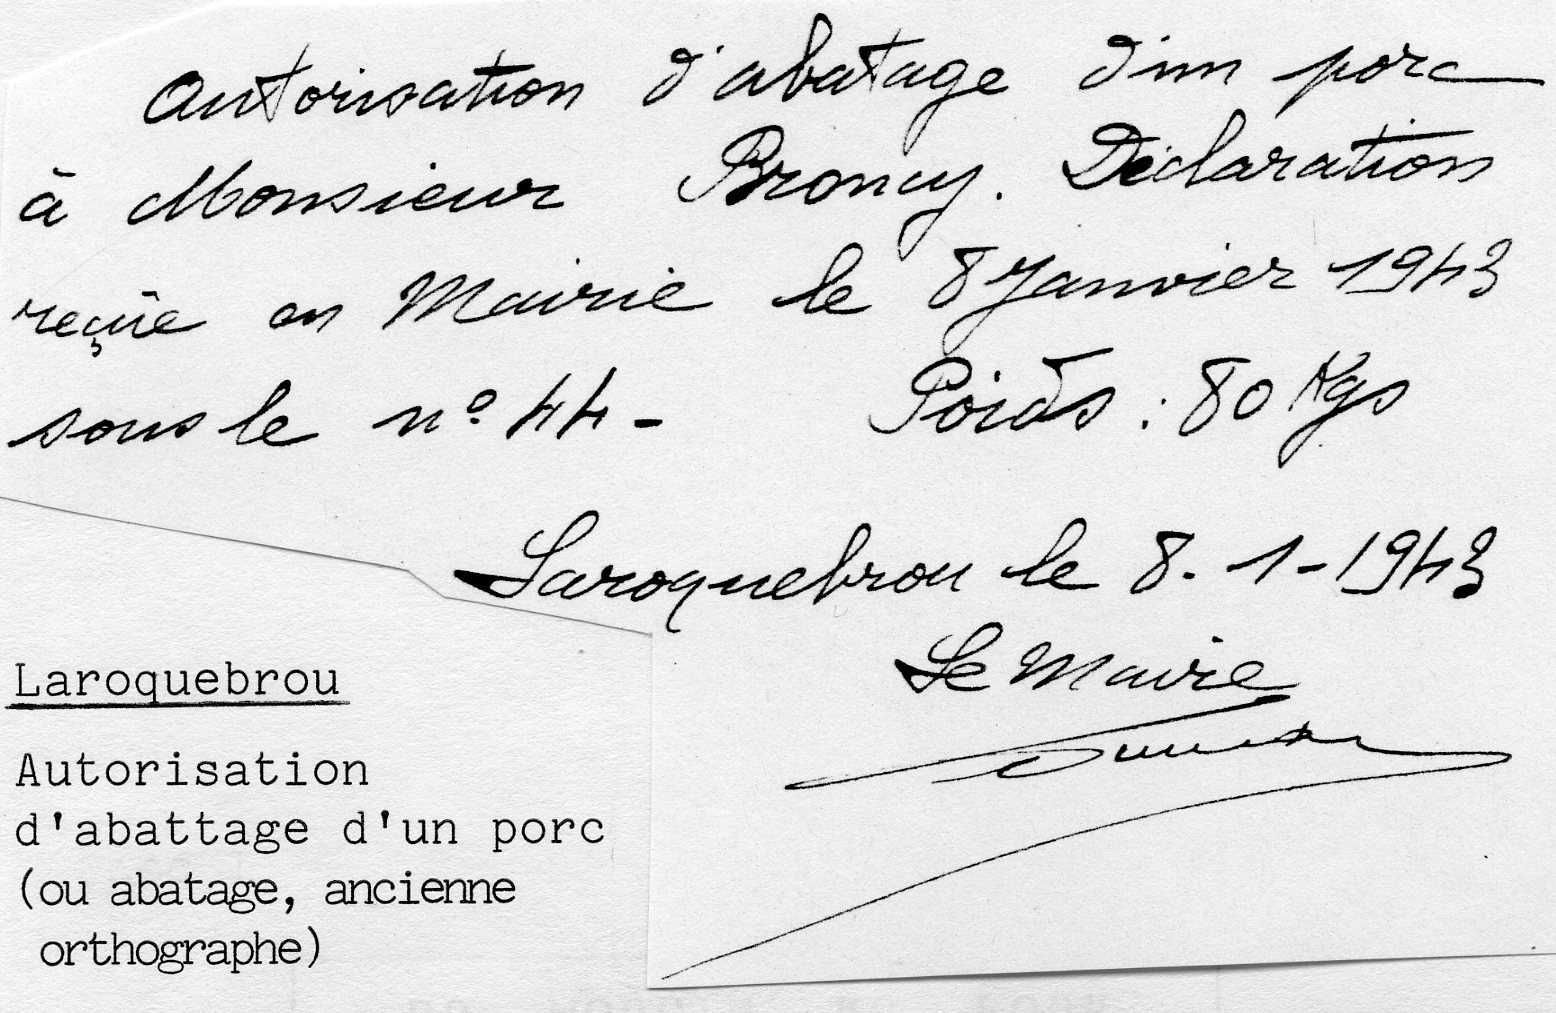 Autorisation d'abatage d'un porc
à Monsieur Broncy. Déclaration
reçue en Mairie le 8 Janvier 1943
sous le n° 44 - Poids : 80 Kgs
Laroquebrou le 8-1-1943
Le Maire
Laroquebrou
Autorisation
d'abattage d'un porc
(ou abatage, ancienne
orthographe)